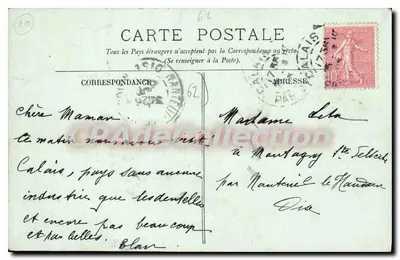 62
CARTE POSTALE
Tous les Pays étrangers n'acceptent pas la Correspondance au recto
(Se renseigner à la Poste).
CORRESPONDANCE
ADRESSE
CALAIS
CALAIS
NANTEUIL
62
Chère Maman
ce matin sommes
Calais, pays sans aucune
industrie que les dentelles
et encore pas beaucoup
et pas belles.
Madame
à Montagny Ste Félicité
par Nanteuil le Haudoin
Oise